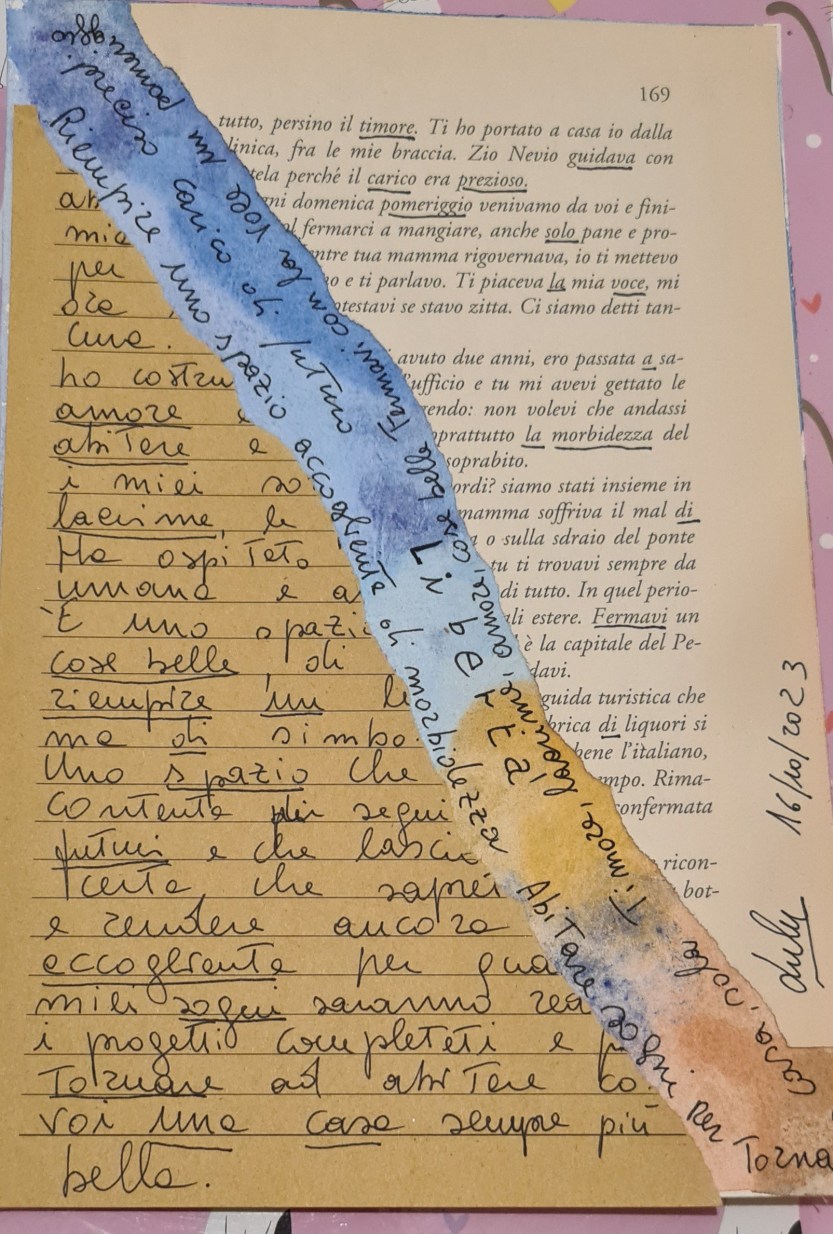 169
tutto, persino il timore. Ti ho portato a casa io dalla
linica, fra le mie braccia. Zio Nevio guidava con
tela perché il carico era prezioso.
gni domenica pomeriggio venivamo da voi e fini-
fermarci a mangiare, anche solo pane e pro-
ntre tua mamma rigovernava, io ti mettevo
no e ti parlavo. Ti piaceva la mia voce, mi
otestavi se stavo zitta. Ci siamo detti tan-
avuto due anni, ero passata a sa-
l'ufficio e tu mi avevi gettato le
gendo: non volevi che andassi
oprattutto la morbidezza del
soprabito.
ordi? siamo stati insieme in
mamma soffriva il mal di
a o sulla sdraio del ponte
tu ti trovavi sempre da
di tutto. In quel perio-
ali estere. Fermavi un
è la capitale del Pe-
davi.
guida turistica che
brica di liquori si
bene l'italiano,
mpo. Rima-
confermata
ricon-
bot-
mia
per
ora
cura.
ho costru
amore e
abitare e
i miei so
lacrime, le
Ha ospitato
umana e a
È uno spazi
cose belle, di
riempire un le
ma di simbo
Uno spazio che
contente di segui
futuri e che lascia
certa, che saprei
e rendere ancora
accogliente per qua
miei sogni saranno rea
i progetti completati e p
Tornare ad abitare co
voi una casa sempre più
bella.
pomeriggio
preciso un
Riempire uno spazio accogliente di morbidezza
carico di futuro
Fermavi con la voce
Timore, lacrime, amore, cose belle
Libertà
Abitare sogni per Torna
casa, sola
Lulu 16/10/2023